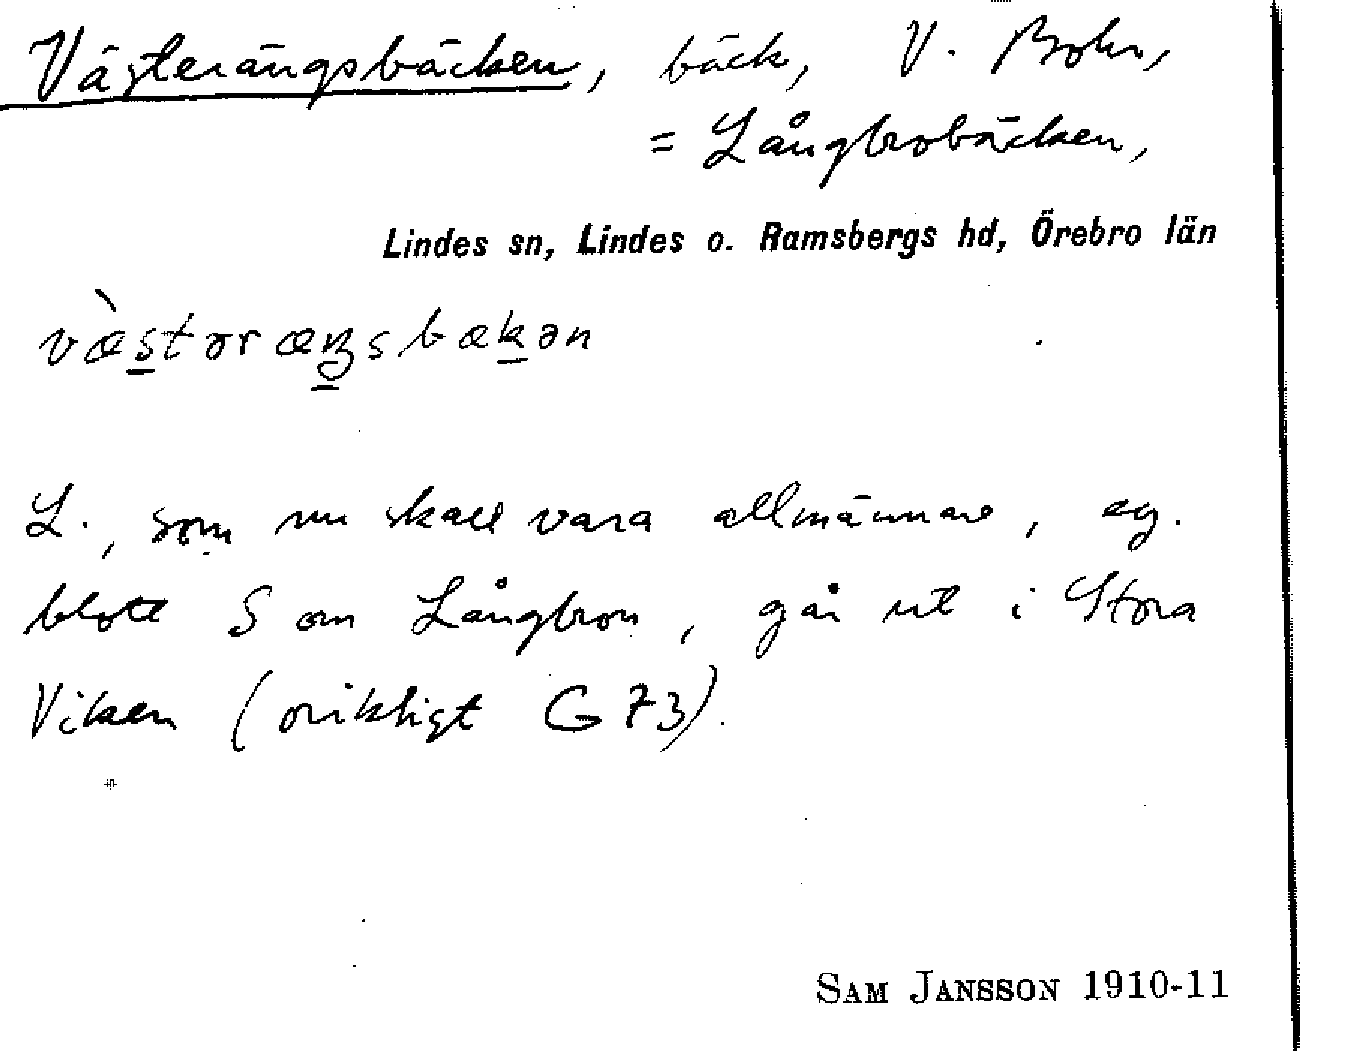 Västerängsbäcken, bäck, V. Bohr,
= Långbrobäcken,
Lindes sn, Lindes o. Ramsbergs hd, Örebro län
væ̀stəræŋsbækən
L., som nu skall vara allmännare, eg.
blott S om Långbron, går ut i Stora
Viken (oriktigt G 73).
SAM JANSSON 1910-11